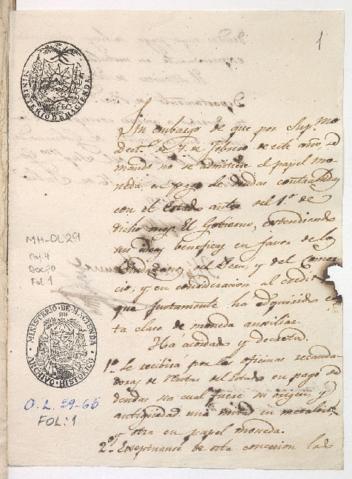 1
MINISTERIO DE HACIENDA
Sin embargo de que por Sup.mo
decto. de 1º de Febrero de este año, se
mandó no se admitiese el papel mo-
neda, en pago de deudas contrahidas
con el Estado antes del 1º de
dicho mes. El Gobierno, extendiendo
en favor de los
y del Comer-
cio, y en consideracion al credito
que justamente ha adquirido es-
ta clase de moneda auxiliar.
Ha acordado y decreta.
1º Se recibirá por las oficinas recauda-
doras de Rentas del Estado en pago de
deudas sea cual fuere su origen y
antiguedad una mitad en metalico y
otra en papel moneda.
2º Exceptuanse de esta concesion las
MH-OL29
Caj. 4
Doc. 70
Fol. 1
MINISTERIO DE HACIENDA
ARCHIVO HISTORICO
O.L. 29-65
FOL: 1